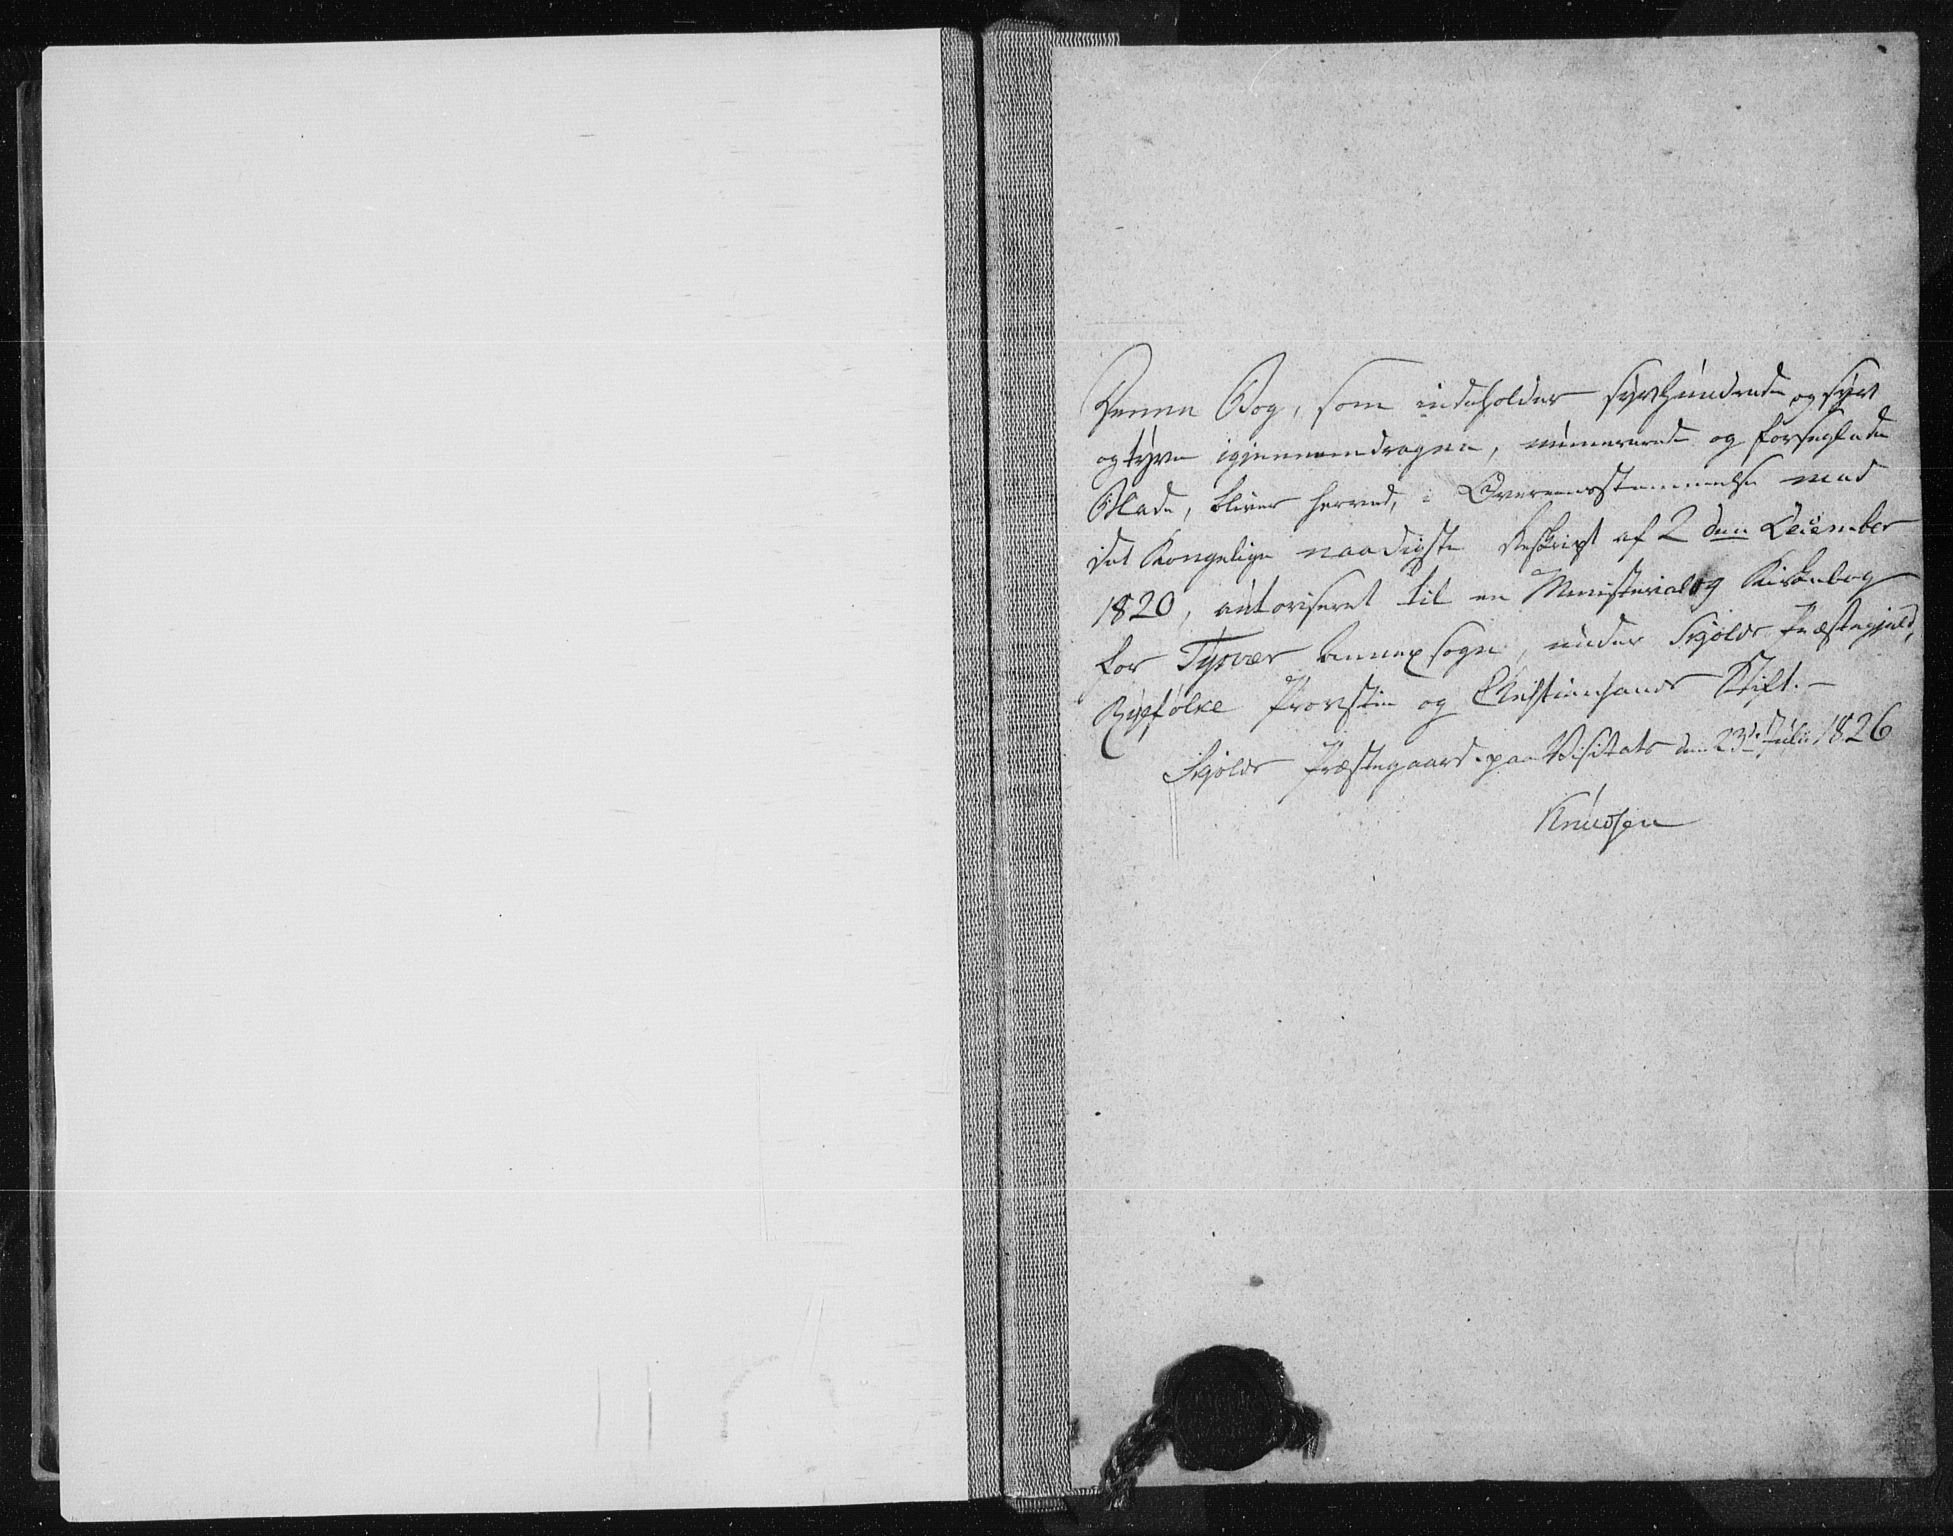 Denne Bog, som indeholder syvhundrede og syv
og tyve igjennemdragne, numererede og forseglede
Blade, bliver herved, i Overeensstemmelse med
det Kongelige naadigste Reskript af 2 den December
1820, autoriseret til en Ministerialog Kirkebog
for Tysvær Annexsogn, under Skjolds Præstegjeld,
Ryefylke Provstie og Christiansands Stift.-
Skjolds Præstegaard paa Visitats den 23de Julii 1826
Knudsen